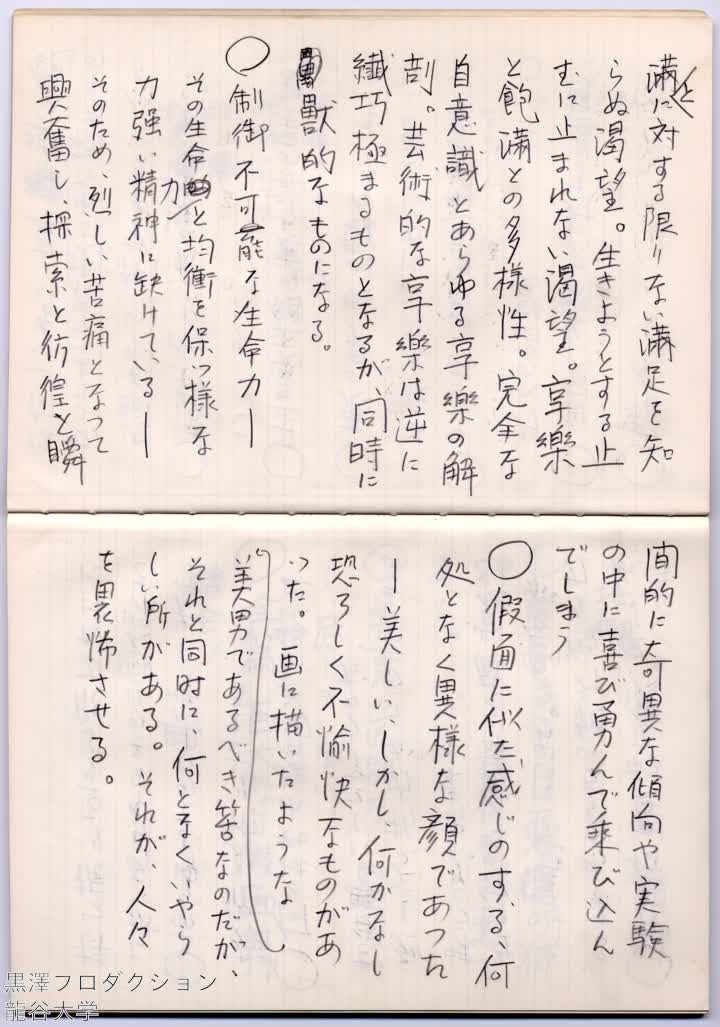 満と対する限りない満足を知
らぬ渇望。生きようとする止
むに止まれない渇望。享樂
と飽満との多様性。完全な
自意識とあらゆる享樂の解
剖。芸術的な享樂は逆に
繊巧極まるものとなるが、同時に
獣的なものになる。
○制御不可能な生命力ー
その生命力と均衡を保つ様な
力強い精神に缺けているー
そのため、烈しい苦痛となつて
興奮し、探索と彷徨と瞬
間的に奇異な傾向や実験
の中に喜び勇んで乗び込ん
でしまう
○假面に似た感じのする、何
処となく異様な顔であつた
ー美しい、しかし、何かなし
恐ろしく不愉快なものがあ
った。画に描いたような
美男であるべき筈なのだが、
それと同時に、何となくいやら
しい所がある。それが、人々
を畏怖させる。
黒澤プロダクション
龍谷大学